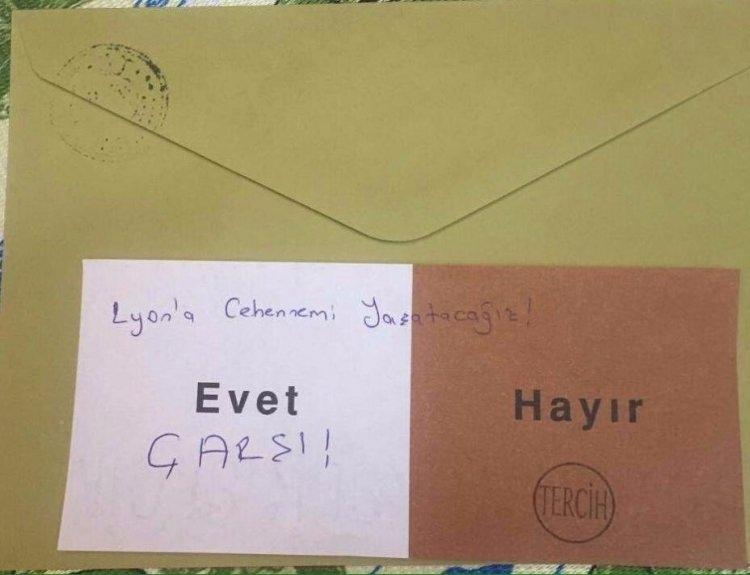 Lyon'a Cehennemi Yaşatacağız!
Evet
Hayır
ÇARŞI!
TERCİH